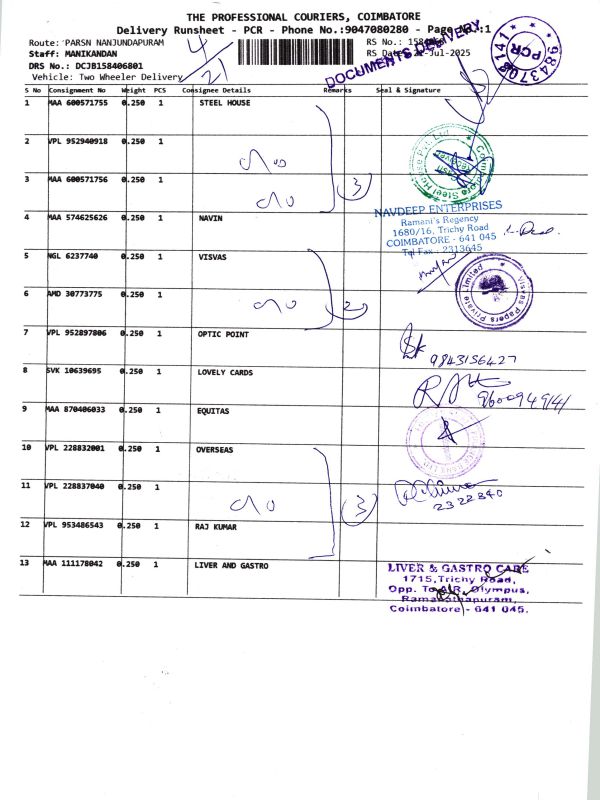 THE PROFESSIONAL COURIERS, COIMBATORE
Delivery Runsheet - PCR - Phone No.:9047080280 - Page No.:1
Route: PARSN NANJUNDAPURAM
RS No.:
Staff: MANIKANDAN
RS Date: -Jul-2025
DRS No.: DCJB158406801
Vehicle: Two Wheeler Delivery
4/21
DOCUMENTS DELIVERY
PCR
S No Consignment No Weight PCS Consignee Details Remarks Seal & Signature
1 MAA 600571755 0.250 1 STEEL HOUSE
2 VPL 952940918 0.250 1
3 MAA 600571756 0.250 1
3
Coimbatore Steel House Pvt. Ltd
4 MAA 574625626 0.250 1 NAVIN
NAVDEEP ENTERPRISES
Ramani's Regency
1680/16, Trichy Road
COIMBATORE - 641 045
Tel Fax : 2313645
5 NGL 6237740 0.250 1 VISVAS
6 AMD 30773775 0.250 1
2
Visvas Papers Private Limited
7 VPL 952897806 0.250 1 OPTIC POINT
9843156427
8 SVK 10639695 0.250 1 LOVELY CARDS
9600949141
9 MAA 870406033 0.250 1 EQUITAS
10 VPL 228832001 0.250 1 OVERSEAS
11 VPL 228837040 0.250 1
3
2322340
12 VPL 953486543 0.250 1 RAJ KUMAR
13 MAA 111178042 0.250 1 LIVER AND GASTRO
LIVER & GASTRO CARE
1715, Trichy Road,
Opp. To AIR, Olympus,
Ramanathapuram,
Coimbatore - 641 045.